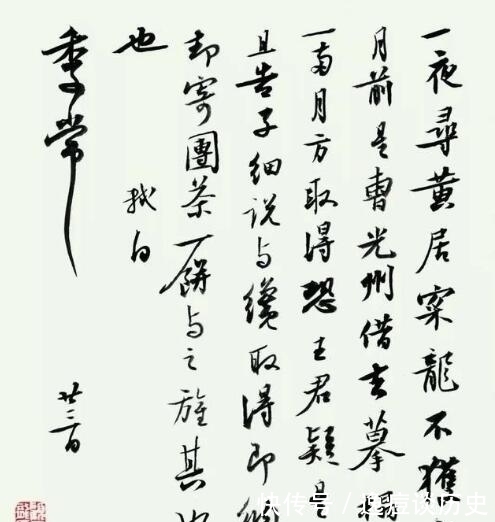 一夜尋黃居寀龍不獲
月前是曹光州借去摹
一兩月方取得恐王君疑是
且告子細說與纔取得即納
却寄團茶一餅與之旌其
也
軾白
季常
廿三日
快传号 / 谈历史